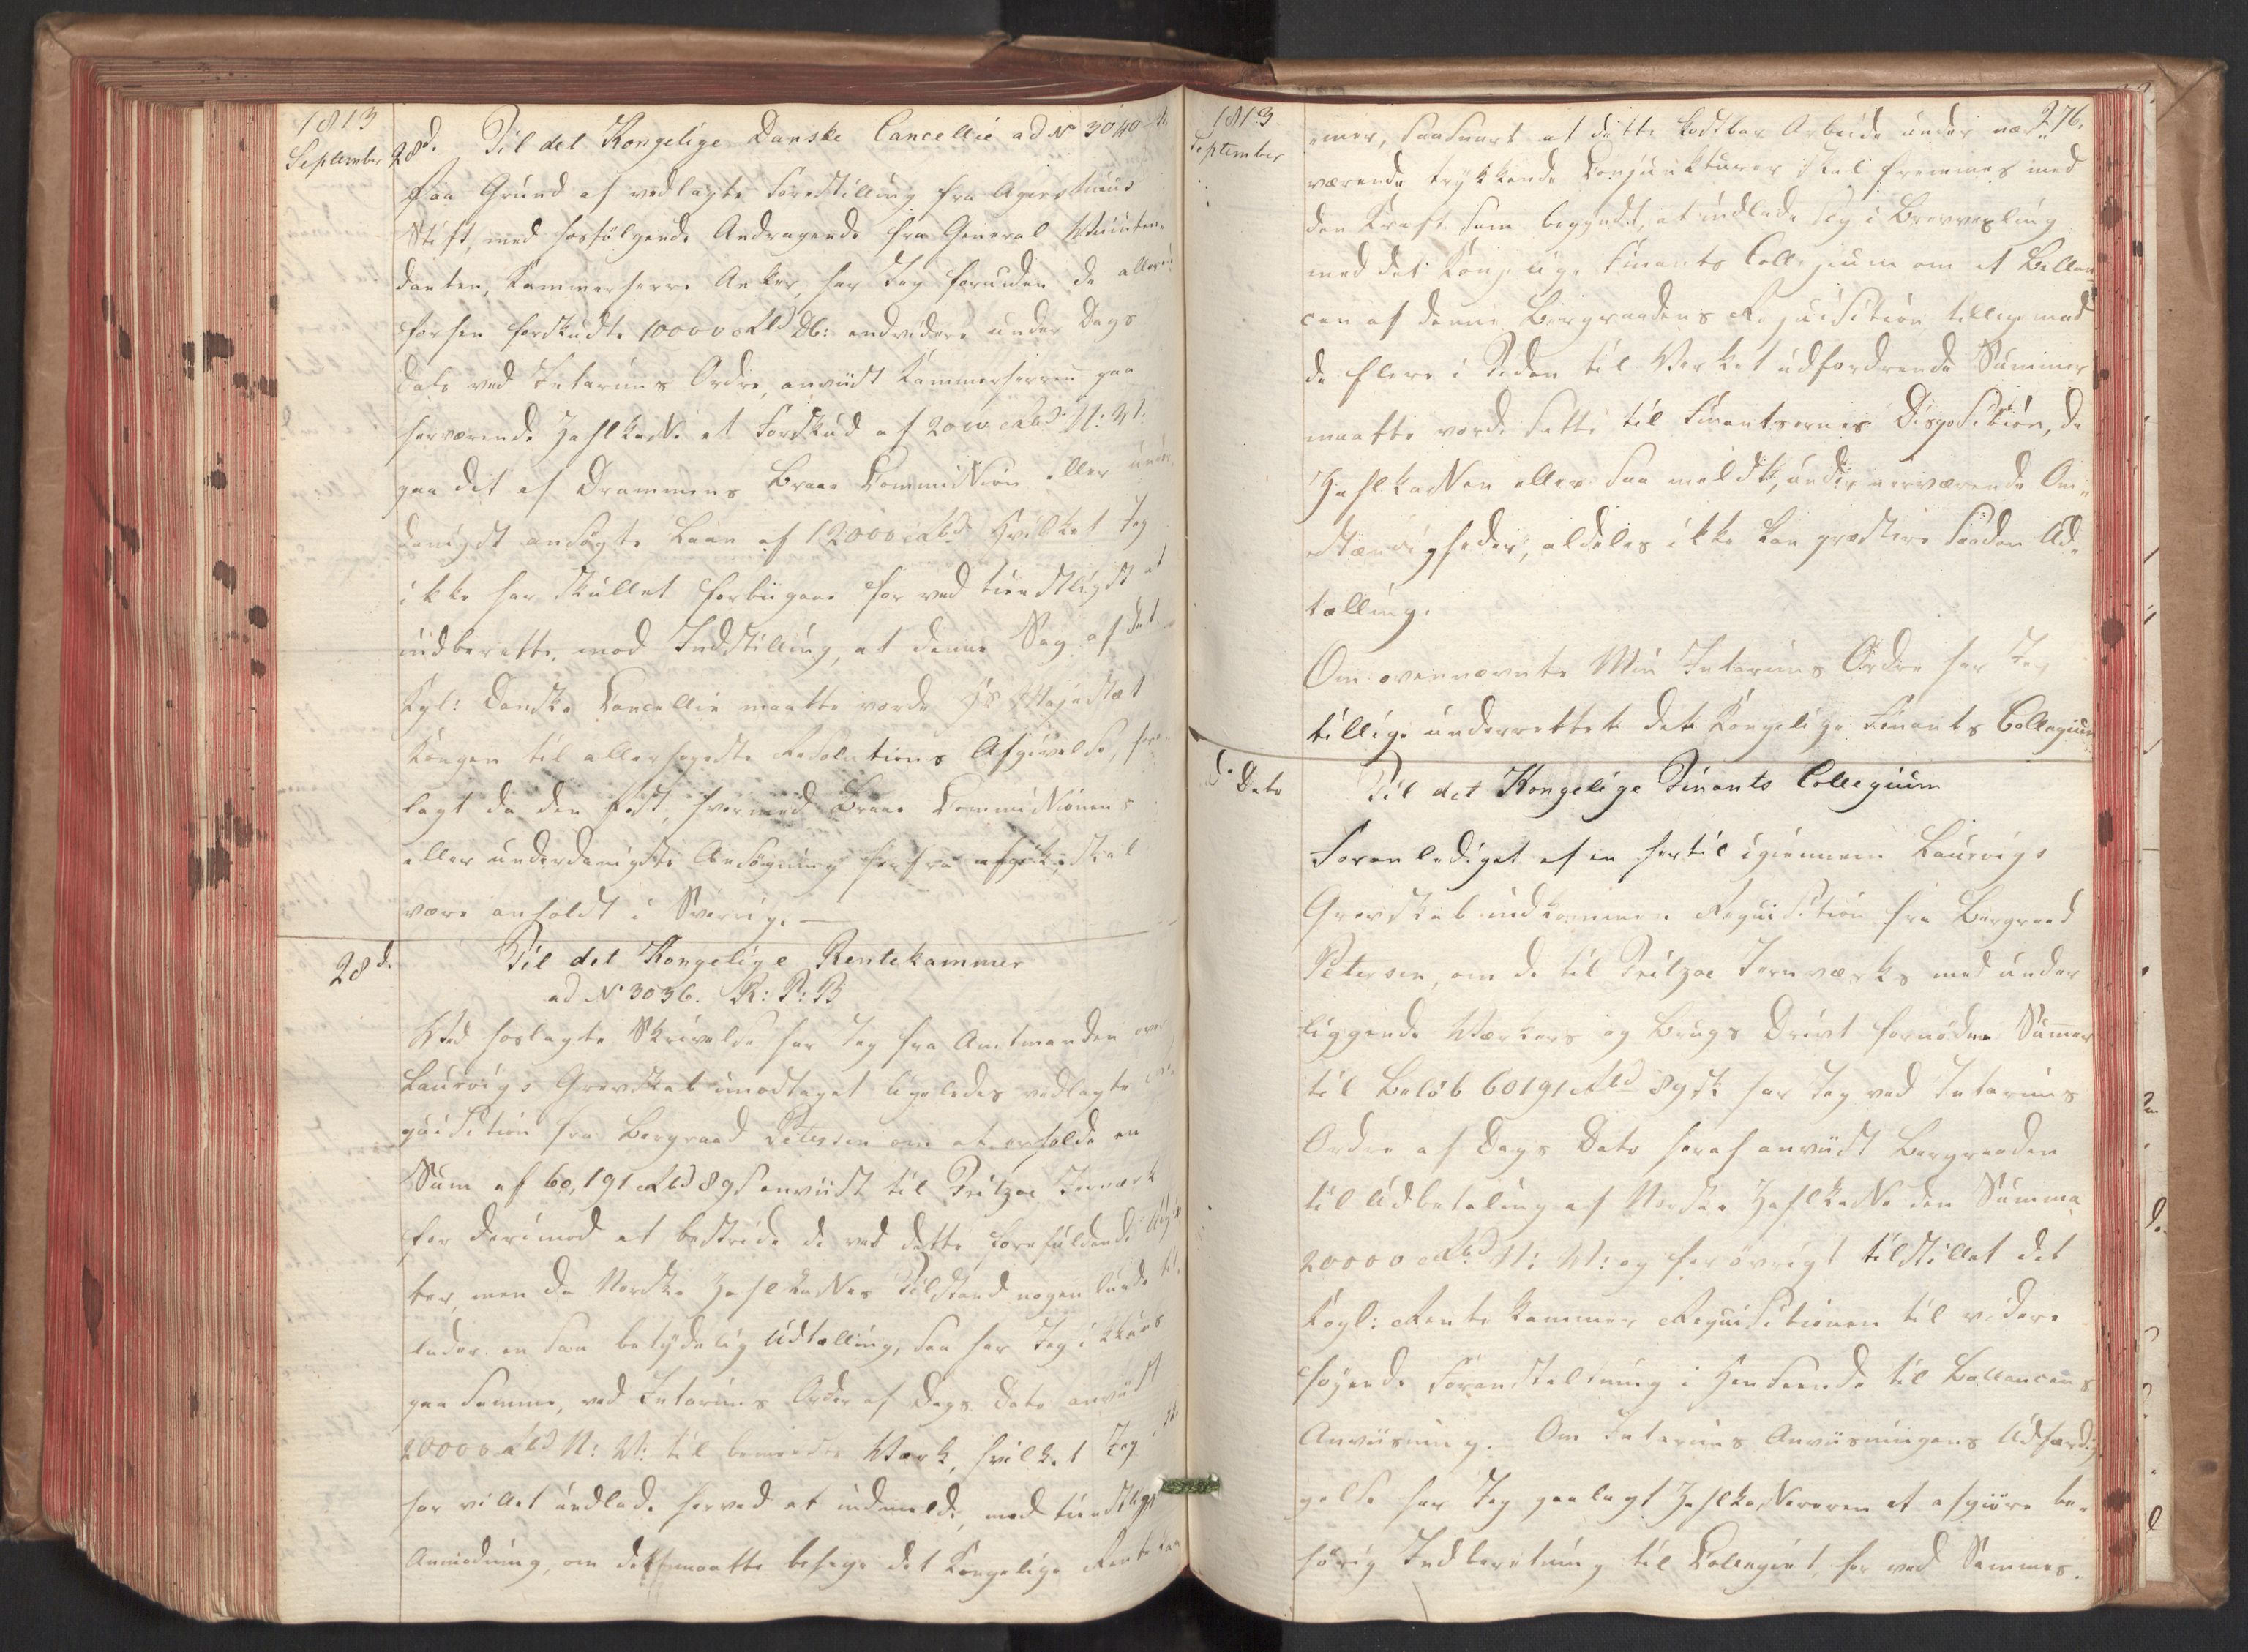 1813
September
28d. Til det Kongelige Danske Cancellie ad No 3040
Paa Grund af vedlagte Forestilling fra Agershuus
Stift, med hosfølgende Andragende fra General Kriinten-
danten, Kammerherre Anker, har Jeg foruden de allere
forhen forskudte 10000 Rbd D.C: endvidere under Dags
Dato ved Interims Ordre, anviist Kammerherren paa
herværende Zahlkasse et Forskud af 2000 Rbd N: V:
paa det af Drammens Brand Commission aller under-
danigst ansøgte Laan af 12000 Rbd. Hvilket Jeg
ikke har skullet forbiigaae herved tienstligst at
indberette, med Indstilling, at denne Sag af det
Kgl: Danske Cancellie maatte vorde Hs Majestæt
Kongen til allerhøieste Resolutions Afgivelse, fore-
lagt da den Post, hvormed Brand Commissionens
allerunderdanigste Ansøgning herfra afgik, skal
være anholdt i Sverrig.
28d. Til det Kongelige Rentekammer
ad No 3036. R: P: B
Ved hoslagte Skrivelse har Jeg fra Amtmanden over
Laurvigs Grevskab modtaget ligeledes vedlagte Re-
quisition fra Bergraad Petersen om at erholde en
Sum af 60,191 Rbd 89 s anviist til Fritzøe Jernværk
for derimod at bestride de ved dette forefaldende Udgif-
ter, men da Norske Zahlkasses Tilstand nogenlunde til-
lader en saa betydelig Udtælling, saa har Jeg ikkuns
paa Samme, ved Interims Ordre af Dags Dato anviist
20000 Rbd N: V: til bemeldte Værk, hvilket Jeg ik-
har villet undlade herved at indmelde, med tienstligst
Anmodning, om det maatte behage det Kongelige Rentekam
1813
September
276.
mer, saasnart at dette kostbar Arbeide under nær-
værende trykkende Conjunkturer skal fremmes med
den Kraft som begyndt, at indlade sig i Brevvexling
med det Kongelige Finants Collegium om at Ballan
cen af denne Bergraadens Requisition tilligemed
de flere i Tiden til Verket udfordrende Summer
maatte vorde satte til Finantsernes Disposition, da
Zahlkassen eller saa meldt, under nærværende Om-
stændigheder, aldeles ikke kan præstere saadan Ud-
tælling.
Om ovennævnte Min Interims Ordre har Jeg
tillige underrettet det Kongelige Finants Collegium
d. Dato Til det Kongelige Finants Collegium
Foranlediget af en hertil igiennem Laurvigs
Grevskab indkommen Requisition fra Bergraad
Petersen, om de til Fritzøe Jernværks med under
liggende Værkers og Brugs Drivt fornødne Summer
til Beløb 60191 Rbd 89 sk har Jeg ved Interims
Ordre af Dags Dato heraf anviist Bergraaden
til Udbetaling af Norske Zahlkasse den Summa
20000 Rbd. N: V: og forøvrigt tilstillet det
Kongl: Rentekammer Requisitionen til videre
føyende Foranstaltning i Henseende til Ballancens
Anviisning. Om Interims Anviisningens Udfærdi-
gelse har Jeg paalagt Zahlkassereren at afgiøre be-
hørig Indberetning til Collegiet, her ved Sammes.